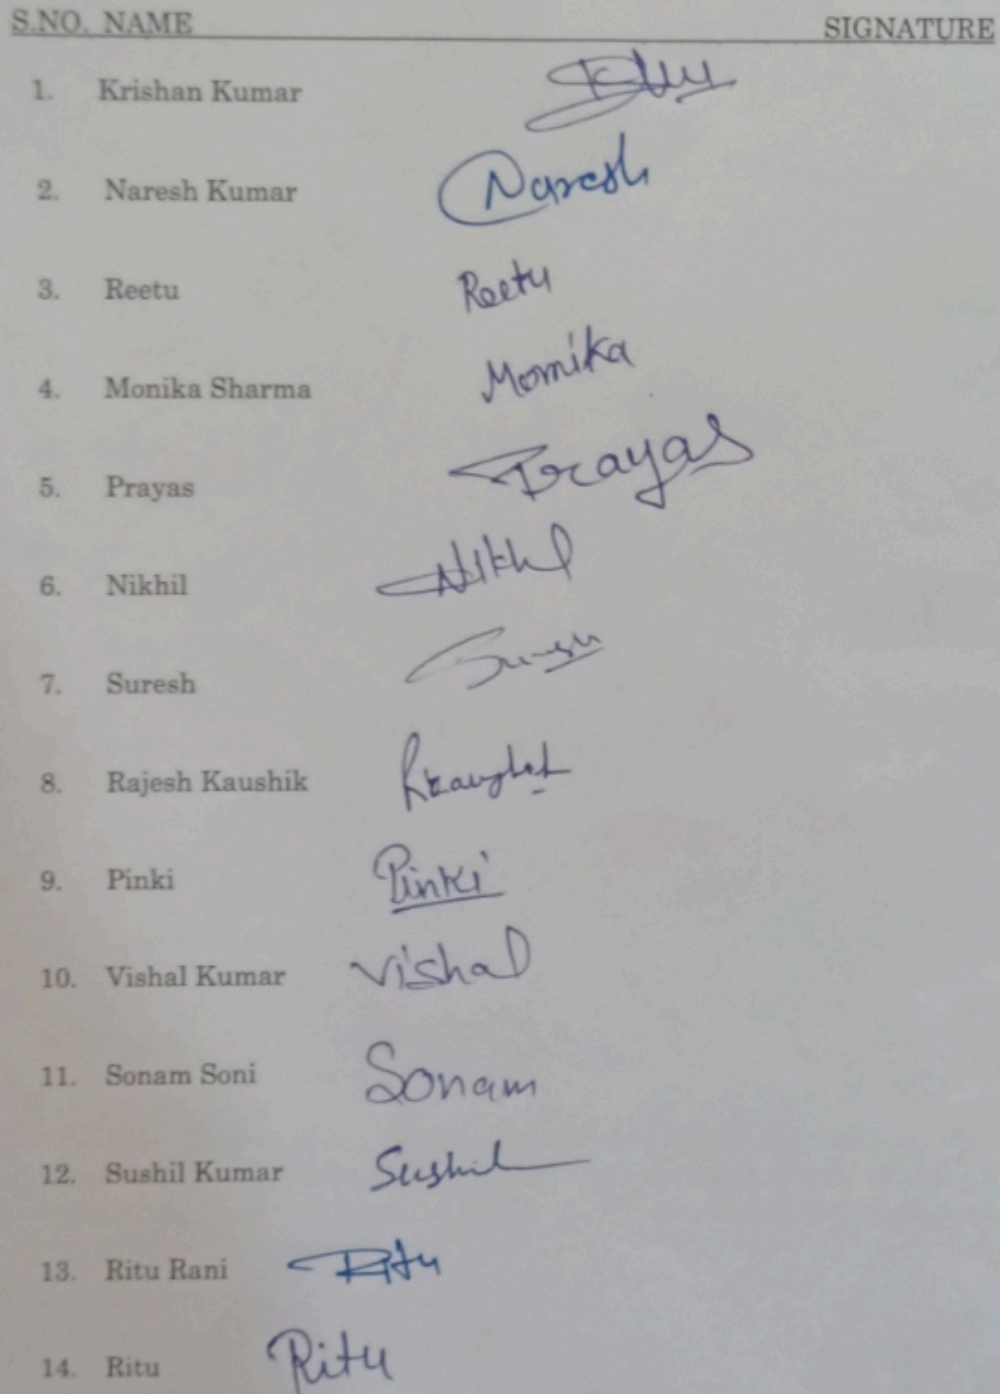 S.NO. NAME SIGNATURE
1. Krishan Kumar
2. Naresh Kumar Naresh
3. Reetu Reetu
4. Monika Sharma Monika
5. Prayas Prayas
6. Nikhil Nikhil
7. Suresh Suresh
8. Rajesh Kaushik
9. Pinki Pinki
10. Vishal Kumar Vishal
11. Sonam Soni Sonam
12. Sushil Kumar Sushil
13. Ritu Rani Ritu
14. Ritu Ritu